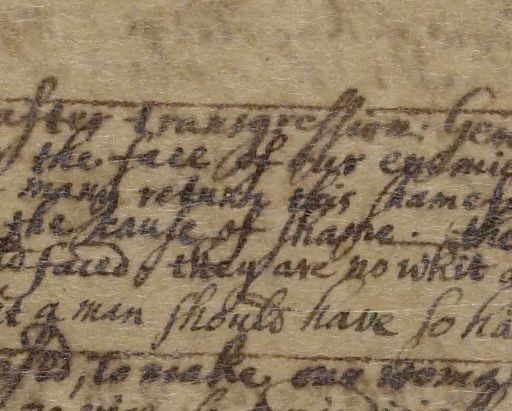 after transgression. Gen
the face of our enemie
many return this shame
the cause of shame. the
faced, they are no whit a
a man should have so ha
, to make one